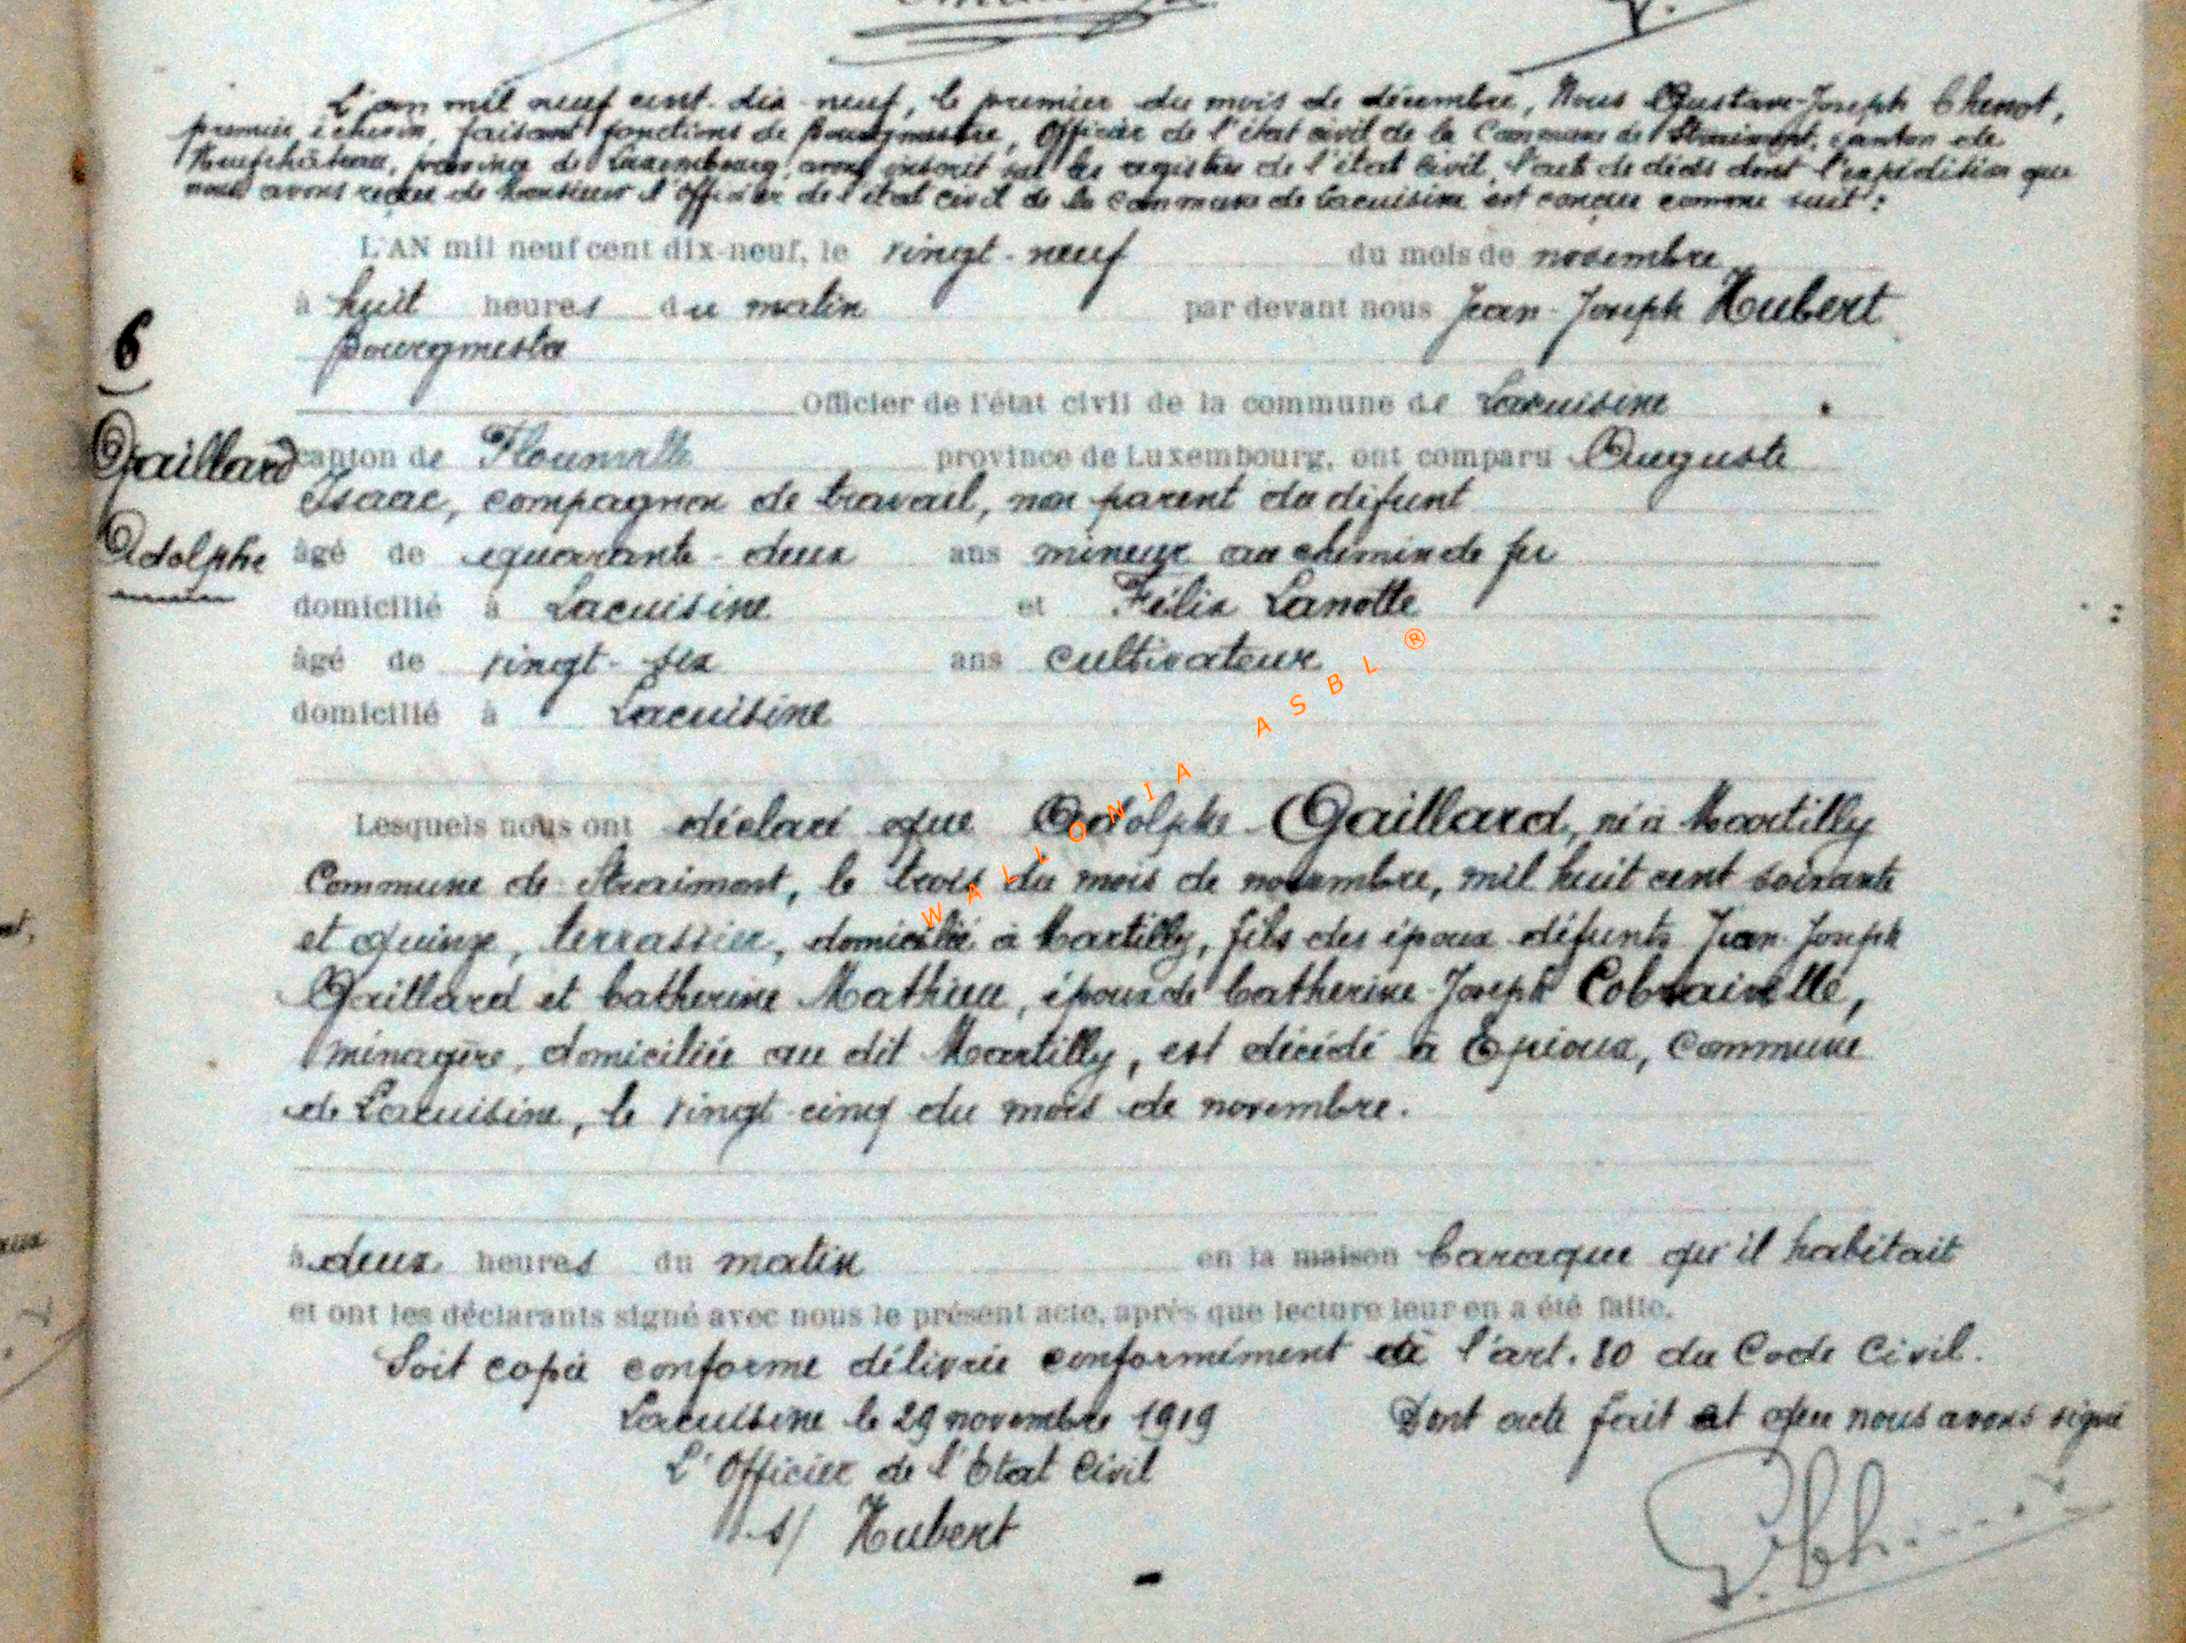 L'an mil neuf cent dix-neuf, le premier du mois de décembre, Nous Gustave-Joseph Chenot,
premier échevin, faisant fonctions de Bourgmestre, Officier de l'état civil de la Commune de Straimont, canton de
Neufchâteau, province de Luxembourg, avons inscrit sur les registres de l'état civil, l'acte de décès dont l'expédition que
nous avons reçue de Monsieur l'Officier de l'état civil de la commune de Lacuisine est conçue comme suit :
L'AN mil neuf cent dix-neuf, le vingt-neuf du mois de novembre
à huit heures du matin par devant nous Jean-Joseph Hubert
Bourgmestre
Officier de l'état civil de la commune de Lacuisine
6
Gaillard
Adolphe
canton de Florenville province de Luxembourg, ont comparu Auguste
Isaac, compagnon de travail, non parent du défunt
âgé de quarante-deux ans mineur au chemin de fer
domicilié à Lacuisine et Félix Lanotte
âgé de vingt-six ans cultivateur
domicilié à Lacuisine
Lesquels nous ont déclaré que Adolphe Gaillard, né à Martilly
Commune de Straimont, le trois du mois de novembre, mil huit cent soixante
et quinze, terrassier, domicilié à Martilly, fils des époux défunts Jean-Joseph
Gaillard et Catherine Mathieu, époux de Catherine-Joseph Cobraiville,
ménagère, domiciliée au dit Martilly, est décédé à Epioux, Commune
de Lacuisine, le vingt-cinq du mois de novembre.
à deux heures du matin en la maison baraque qu'il habitait
et ont les déclarants signé avec nous le présent acte, après que lecture leur en a été faite.
Soit copie conforme délivrée conformément à l'art. 80 du Code Civil.
Lacuisine le 29 novembre 1919 Dont acte fait et que nous avons signé
L'Officier de l'Etat Civil
s/ Hubert
WALLONIA ASBL ®